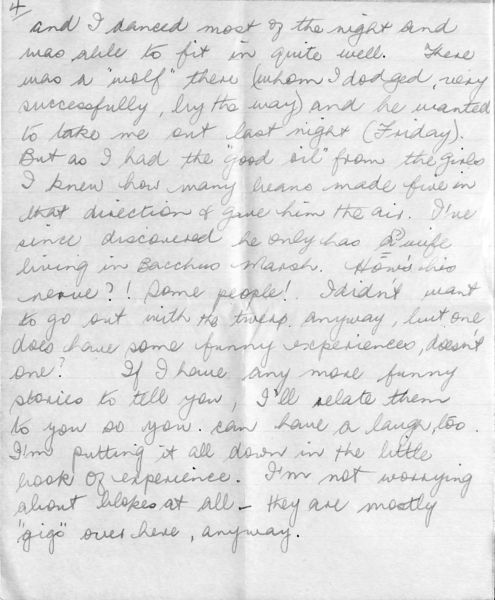 4/
and I danced most of the night and
was able to fit in quite well. There
was a "wolf" there (whom I dodged, very
successfully, by the way) and he wanted
to take me out last night (Friday).
But as I had the "good oil" from the girls
I knew how many beans made five in
that direction & gave him the air. I've
since discovered he only has a wife
living in Bacchus Marsh. How's his
nerve?! Some people! I didn't want
to go out with the twerp anyway, but one
does have some funny experiences, doesn't
one? If I have any more funny
stories to tell you, I'll relate them
to you so you can have a laugh, too.
I'm putting it all down in the little
book of experience. I'm not worrying
about blokes at all – they are mostly
"gigs" over here, anyway.